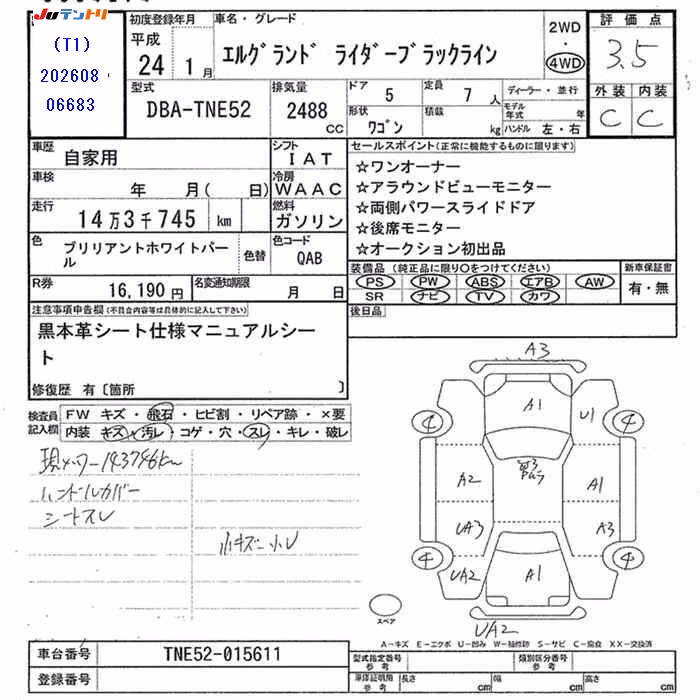 JUテントリ
(T1)
202608
06683
初度登録年月
平成
24 1月
車名・グレード
エルグランド ライダーブラックライン
2WD
・
4WD
評価点
3.5
外装 内装
C C
型式
DBA-TNE52
排気量
2488
CC
ドア
5
定員
7人
形状
ワゴン
積載
kg
ディーラー・並行
モデル年式 年
ハンドル 左・右
車歴 自家用
シフト
IAT
車検 年 月( 日)
冷房
WAAC
走行 14万3千745 km
燃料
ガソリン
色
ブリリアントホワイトパール
色替
色コード
QAB
R券 16,190円
名変通知期限
月 日
セールスポイント(正常に機能するものに限ります)
☆ワンオーナー
☆アラウンドビューモニター
☆両側パワースライドドア
☆後席モニター
☆オークション初出品
装備品 (純正品に限り○をつけてください)
PS PW ABS エアB AW
SR ナビ TV カワ
新車保証書
有・無
後日品
注意事項申告欄(不具合内容等は具体的に記入して下さい)
黒本革シート仕様マニュアルシー
ト
修復歴 有〔箇所 〕
検査員記入欄
FW キズ・飛石・ヒビ割・リペア跡・×要
内装 キズ・汚レ・コゲ・穴・スレ・キレ・破レ
現メーター143746km
ハンドルカバー
シートスレ
小キズ 小U
A3
A1
U1
4
4
A2
A1
UA3
A3
4
4
UA2
A1
UA2
スペア
A-キズ E-エクボ U-凹み W-補修跡 S-サビ C-腐食 XX-交換済
車台番号 TNE52-015611
登録番号
型式指定番号 参考
類別区分番号 参考
車体証明用 参考
長さ cm
幅 cm
高さ cm